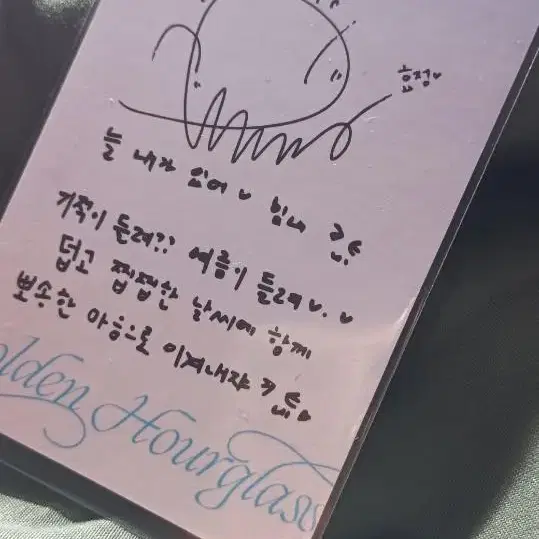 효정♥
늘 내가 있어♥ 힘내
기적이 들려?? 여름이 들려♥.♥
덥고 찝찝한 날씨에 함께
뽀송한 마음으로 이겨내쟈
olden Hourglass